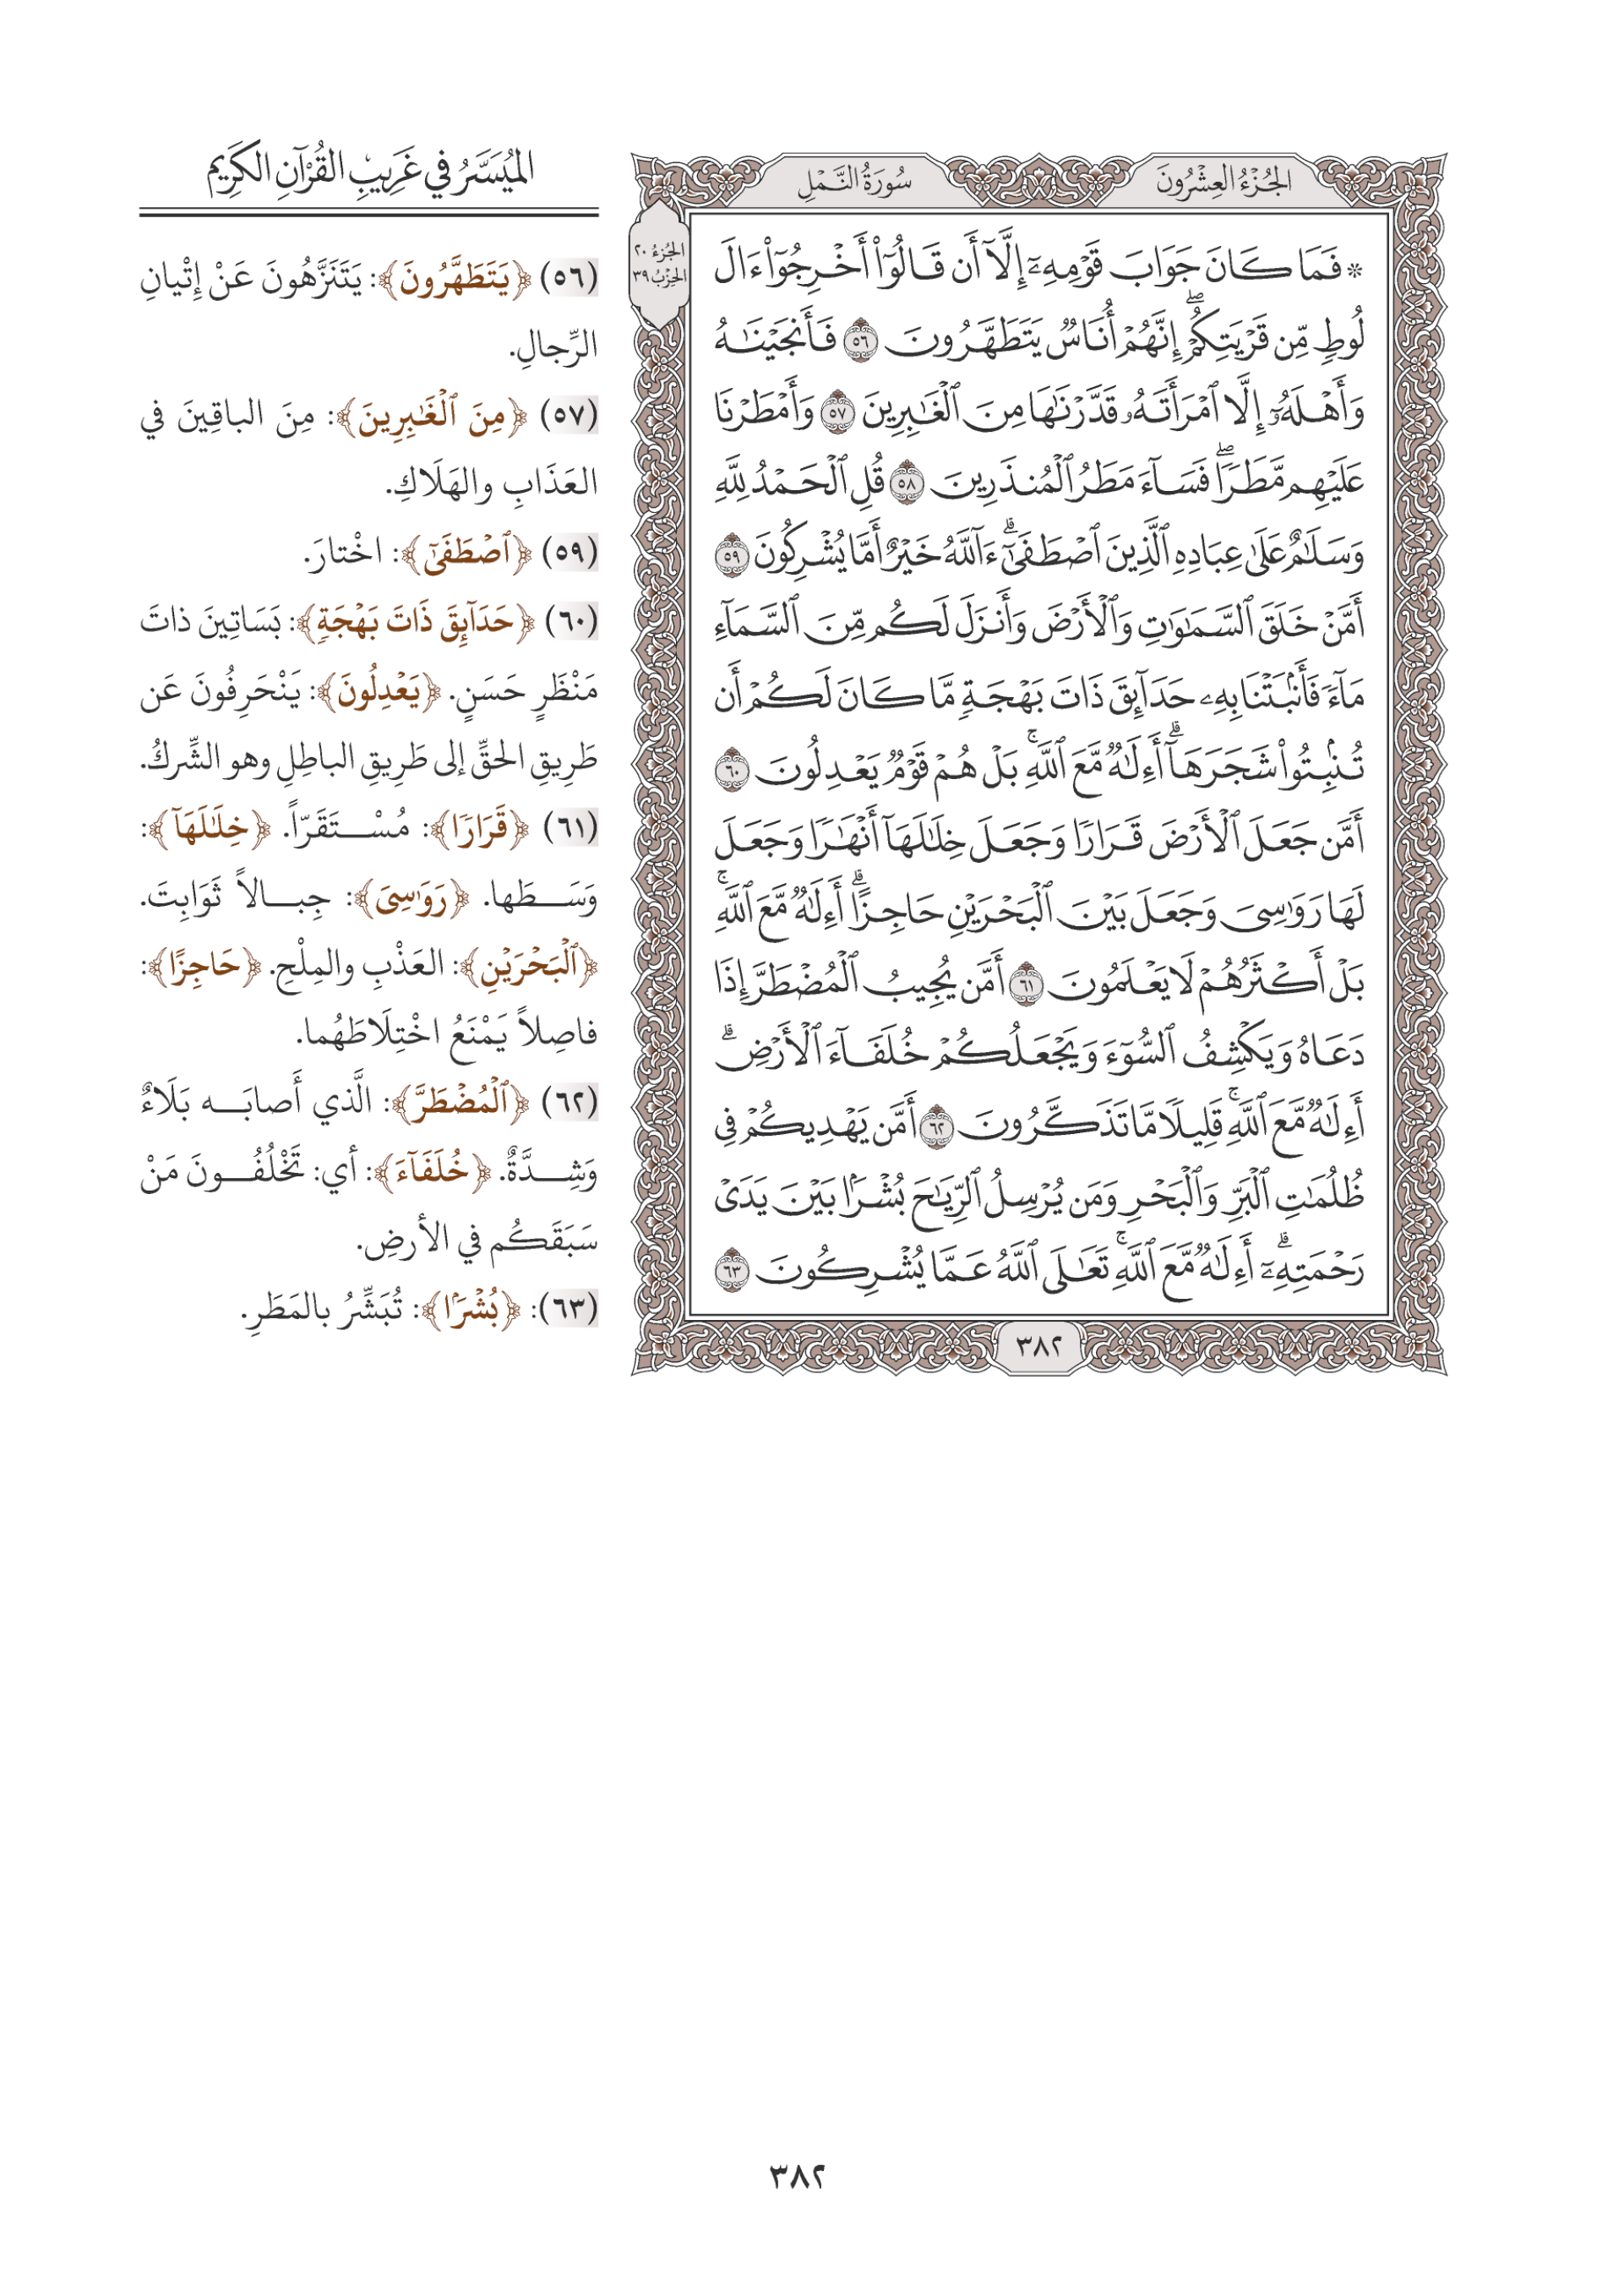 الجُزْءُ العِشْرُونَ
سُورَةُ النَّمْلِ
الجُزءُ ٢٠
الحِزْبُ ٣٩
* فَمَا كَانَ جَوَابَ قَوْمِهِۦٓ إِلَّآ أَن قَالُوٓاْ أَخْرِجُوٓاْ ءَالَ
لُوطٍ مِّن قَرْيَتِكُمْۖ إِنَّهُمْ أُنَاسٌ يَتَطَهَّرُونَ ٥٦ فَأَنجَيْنَٰهُ
وَأَهْلَهُۥٓ إِلَّا ٱمْرَأَتَهُۥ قَدَّرْنَٰهَا مِنَ ٱلْغَٰبِرِينَ ٥٧ وَأَمْطَرْنَا
عَلَيْهِم مَّطَرًاۖ فَسَآءَ مَطَرُ ٱلْمُنذَرِينَ ٥٨ قُلِ ٱلْحَمْدُ لِلَّهِ
وَسَلَٰمٌ عَلَىٰ عِبَادِهِ ٱلَّذِينَ ٱصْطَفَىٰٓۗ ءَآللَّهُ خَيْرٌ أَمَّا يُشْرِكُونَ ٥٩
أَمَّنْ خَلَقَ ٱلسَّمَٰوَٰتِ وَٱلْأَرْضَ وَأَنزَلَ لَكُم مِّنَ ٱلسَّمَآءِ
مَآءً فَأَنۢبَتْنَا بِهِۦ حَدَآئِقَ ذَاتَ بَهْجَةٍ مَّا كَانَ لَكُمْ أَن
تُنۢبِتُواْ شَجَرَهَآۗ أَءِلَٰهٌ مَّعَ ٱللَّهِۚ بَلْ هُمْ قَوْمٌ يَعْدِلُونَ ٦٠
أَمَّن جَعَلَ ٱلْأَرْضَ قَرَارًا وَجَعَلَ خِلَٰلَهَآ أَنْهَٰرًا وَجَعَلَ
لَهَا رَوَٰسِىَ وَجَعَلَ بَيْنَ ٱلْبَحْرَيْنِ حَاجِزًاۗ أَءِلَٰهٌ مَّعَ ٱللَّهِۚ
بَلْ أَكْثَرُهُمْ لَا يَعْلَمُونَ ٦١ أَمَّن يُجِيبُ ٱلْمُضْطَرَّ إِذَا
دَعَاهُ وَيَكْشِفُ ٱلسُّوٓءَ وَيَجْعَلُكُمْ خُلَفَآءَ ٱلْأَرْضِۗ
أَءِلَٰهٌ مَّعَ ٱللَّهِۚ قَلِيلًا مَّا تَذَكَّرُونَ ٦٢ أَمَّن يَهْدِيكُمْ فِى
ظُلُمَٰتِ ٱلْبَرِّ وَٱلْبَحْرِ وَمَن يُرْسِلُ ٱلرِّيَٰحَ بُشْرًۢا بَيْنَ يَدَىْ
رَحْمَتِهِۦٓۗ أَءِلَٰهٌ مَّعَ ٱللَّهِۚ تَعَٰلَى ٱللَّهُ عَمَّا يُشْرِكُونَ ٦٣
٣٨٢
المُيَسَّرُ في غَرِيبِ القُرْآنِ الكَرِيمِ
(٥٦) ﴿يَتَطَهَّرُونَ﴾: يَتَنَزَّهُونَ عَنْ إِتْيانِ
الرِّجالِ.
(٥٧) ﴿مِنَ ٱلْغَٰبِرِينَ﴾: مِنَ الباقِينَ في
العَذَابِ والهَلَاكِ.
(٥٩) ﴿ٱصْطَفَىٰٓ﴾: اخْتارَ.
(٦٠) ﴿حَدَآئِقَ ذَاتَ بَهْجَةٍ﴾: بَسَاتِينَ ذاتَ
مَنْظَرٍ حَسَنٍ. ﴿يَعْدِلُونَ﴾: يَنْحَرِفُونَ عَن
طَرِيقِ الحقِّ إلى طَرِيقِ الباطِلِ وهو الشِّركُ.
(٦١) ﴿قَرَارًا﴾: مُسْتَقَرّاً. ﴿خِلَٰلَهَآ﴾:
وَسَطَها. ﴿رَوَٰسِىَ﴾: جِبالاً ثَوَابِتَ.
﴿ٱلْبَحْرَيْنِ﴾: العَذْبِ والمِلْحِ. ﴿حَاجِزًا﴾:
فاصِلاً يَمْنَعُ اخْتِلَاطَهُما.
(٦٢) ﴿ٱلْمُضْطَرَّ﴾: الَّذي أَصابَه بَلَاءٌ
وَشِدَّةٌ. ﴿خُلَفَآءَ﴾: أي: تَخْلُفُونَ مَنْ
سَبَقَكُم في الأرضِ.
(٦٣): ﴿بُشْرًۢا﴾: تُبَشِّرُ بالمَطَرِ.
٣٨٢